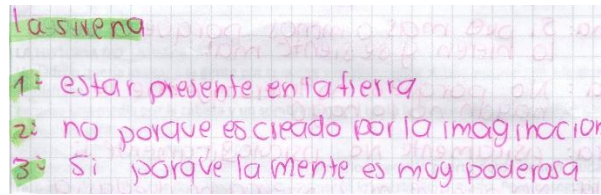 la sirena
1: estar presente en la tierra
2: no porque es creado por la imaginacion
3: si porque la mente es muy poderosa